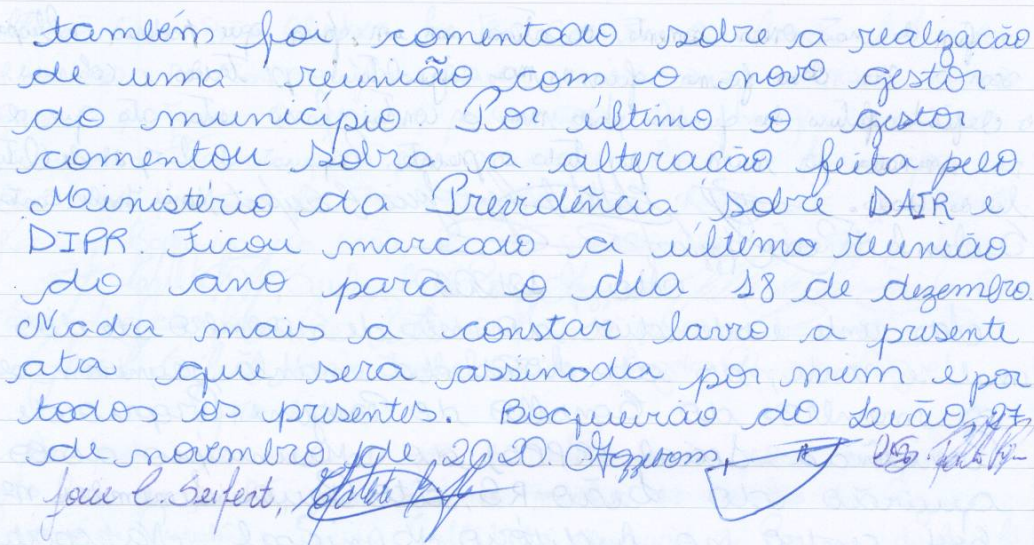 também foi comentado sobre a realização
de uma reunião com o novo gestor
do município Por último o gestor
comentou sobre a alteração feita pelo
Ministério da Previdência sobre DAIR e
DIPR Ficou marcado a último reunião
do ano para o dia 18 de dezembro.
Nada mais a constar lavro a presente
ata que será assinada por mim e por
todos os presentes. Boqueirão do Leão, 27
de novembro de 2020.
Seifert,